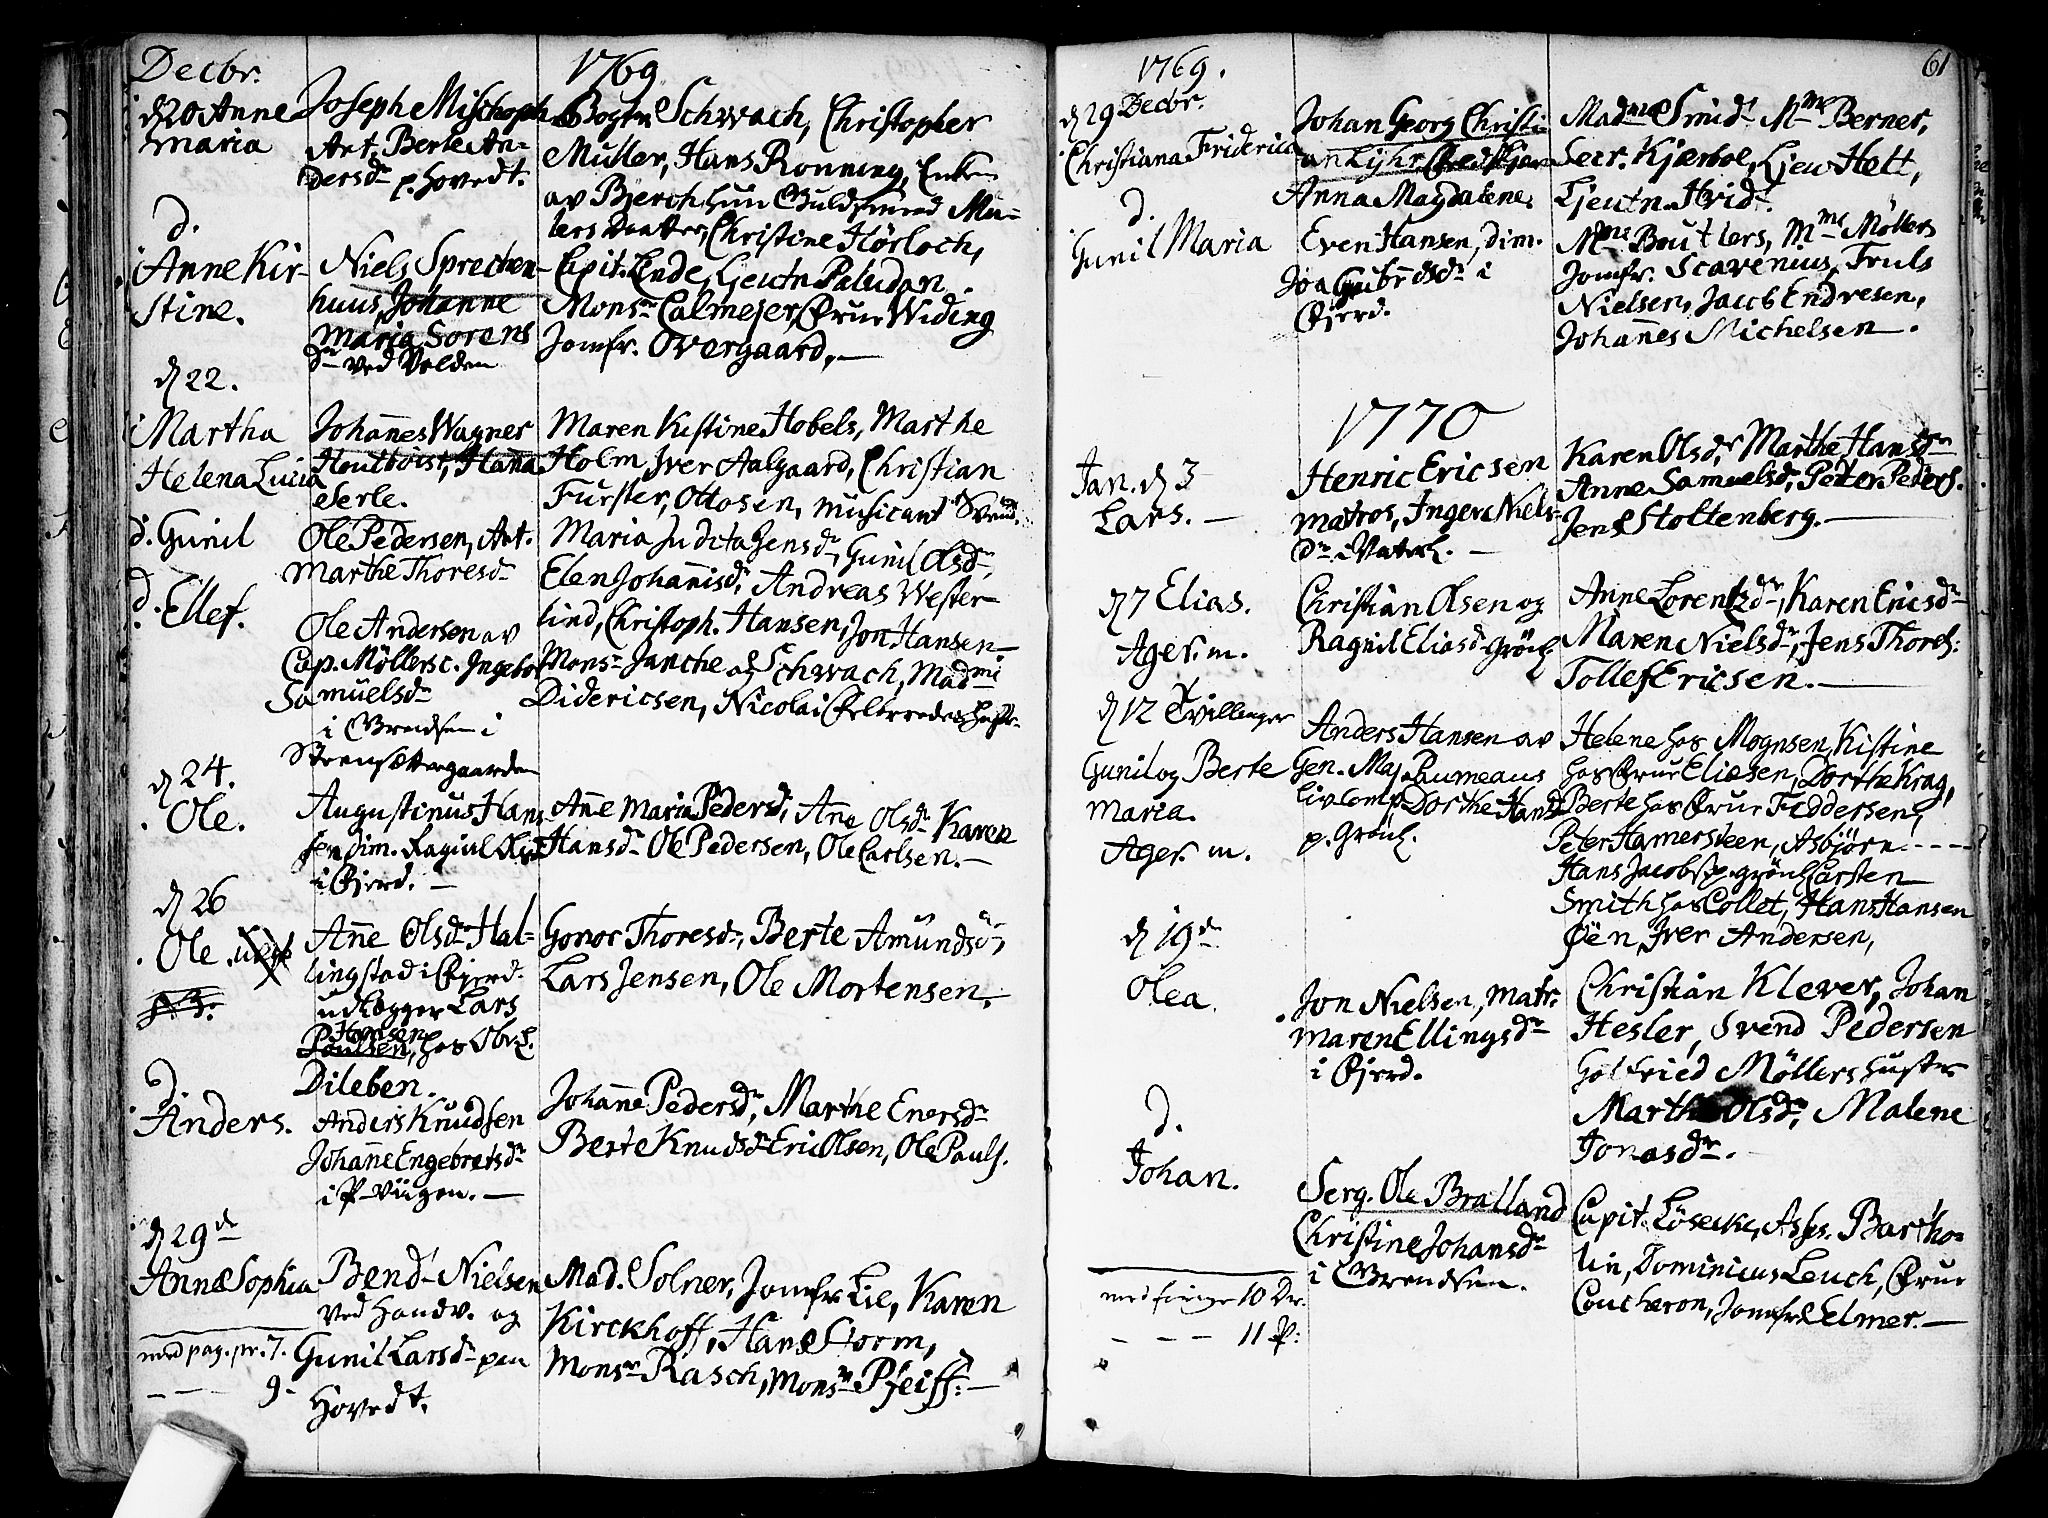 Decbr.
1769
d 20 Anne
maria
Joseph Mischoph
Art. Berte An-
dersdr p. Hovedt.
Bogm Schwach, Christopher
Muller, Hans Ronning, Enken
av Bjerch, hun Guldsmed Mu-
lers Daatter, Christine Hörloch,
d.
Anne Kir-
stine.
Niels Sprecken-
huus, Johanne
Maria Sorens
dr ved Volden
Capit. Lende, Lieutn Paludan.
Monsr Calmejer, Frue Widing
Jomfr. Overgaard,
d 22.
Martha
Helena Lucia
Johañes Wagner
Houtboist, Haña
Serle.
Maren Kistine Hobels, Marthe
Holm Iver Aalgaard, Christian
Furster, Ottosen, musicant Svend.
d. Gunil
Ole Pedersen, Art.
Marthe Thoresdr
Maria Judita Jensdr, Gunil Olsdr,
Elen Johañisdr, Andreas Wester-
lind, Christoph. Hansen, Jon Hansen
d.
Ellef.
Ole Andersen av
Cap. Möllers c. Ingebor
Samuelsdr
i Grendsen i
Monsr Janche og Schwach, Madmi
Didericsen, Nicolai
d 24.
Ole.
Augustinus Han-
sen dim. Ragnil
i Pjerd.
Añe Maria Pedersd, Ane Olsdr Karen
Hansdr Ole Pedersen, Ole Carlsen.
d 26
Ole. uægt
Añe Olsdr Hal-
lingstad i Pjerd.
udlægger Lars
Hansen
Poulsen, hos Obr.
Dileben.
Gonor Thoresdr, Berte Amundsdr,
Lars Jensen, Ole Mortensen.
d.
Anders.
Anders Knudsen
Johañe Engebretsdr
i P-Viigen.
Johañe Pedersdr, Marthe Enersdr
Berte Knudsdr Eric Olsen, Ole Pauls.
d 29d
Anne Sophia
Bend- Nielsen
ved Haandv. og
Gunil Larsdr paa
Hovedt.
Mad. Solner, Jomfr Lie, Karen
Kirckhoff, Hans Storm,
Monsr Rasch, Monsr Pfeiff:
med pag. pr. 7.
9-
61
1769.
d 29 Decbr.
Christiana Friderica
Johan Georg Christi-
an Lyhr,
Anna Magdalene
Madme Smidt Mme Berner,
Secr. Kjerboe, Ljeu Helt,
Ljeutn Hvid.
d.
Gunil Maria
Even Hansen, dim.
Joa Gulbrdsdr i
Pjerd.
Mme Boutlers, Mme Möllers
Jomfr. Scavenius, Truls
Nielsen, Jacob Endresen,
Johañes Michelsen.
1770
Jan. d 3
Lars.
Henric Ericsen
matros, Inger Niels-
dr i Vaterl.
Karen Olsdr, Marthe Hansdr
Anne Samuelsd, Peter Peders.
Jens Stoltenberg.
d 7 Elias.
Ager. m.
Christian Olsen og
Ragnil Eliasd Grönl
Anne Lorentzdr, Karen Ericsdr
Maren Nielsdr, Jens Thores:
Tollef Ericsen.
d 12 Tvillinger
Gunil og Berte
Maria.
Ager. m.
Anders Hansen av
Gen. Maj. Paumeaus
liv Comp Dorthe Hansd
p. Grönl.
Helene hos Mognsen, Kistine
hos Frue Eliesen, Dorthe Krag,
Berte hos Frue Feddersen,
Peter Hamersteen, Asbjörn
Hans Jacobs p. grönl Carsten
Smith hos Collet, Hans Hansen
Øen, Iver Andersen,
d 19d
Olea.
Jon Nielsen, matr.
Maren Ellingsdr
i Pjerd.
Christian Klever, Johan
Hesler, Svend Pedersen
Gotfried Möllers hustr
Marthe Olsdr, Malene
Jonasdr.
d.
Johan.
Serg. Ole Bralland
Christine Johansdr
i Grendsen.
Capit. Löseke, Asss. Bartho-
lin, Dominicus Leuch, Frue
Coucheron, Jomfr Elmer.
med forige 10 Dr.
11 P: